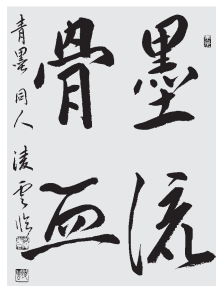 墨流
骨血
青墨同人 凌云临